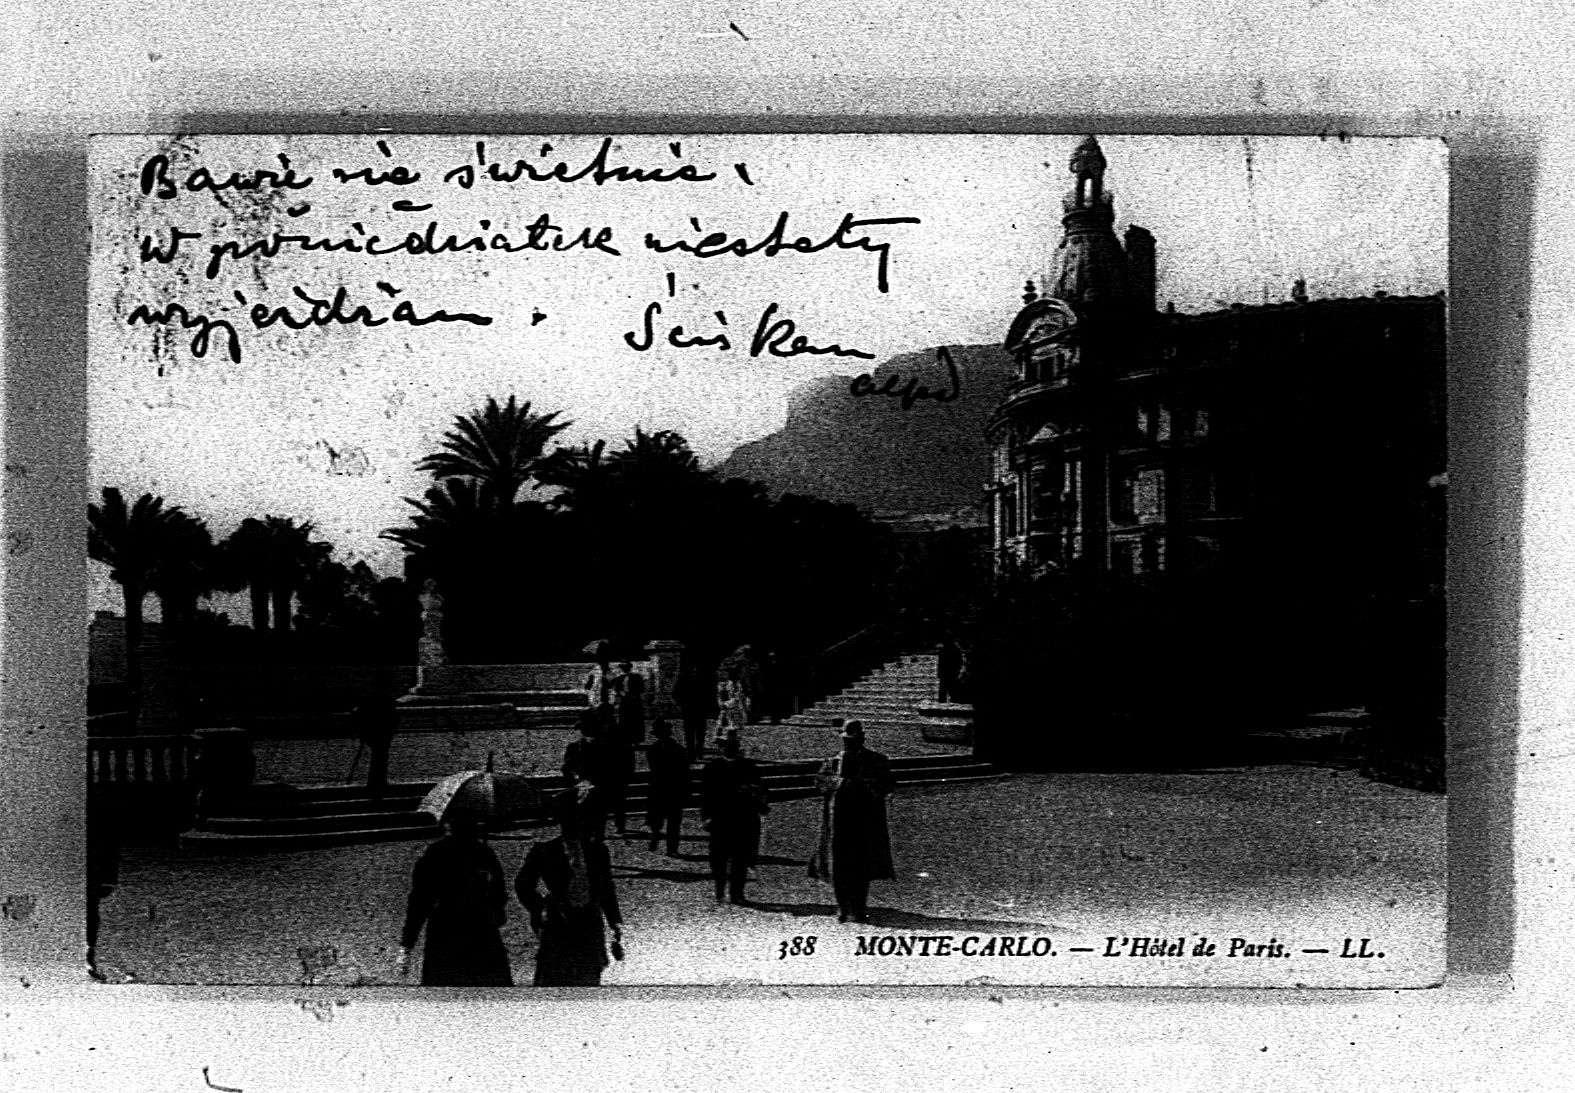 Bawię się świetnie.
w poniedziałek niestety
wyjeżdżam.
Ściskam
Alfred
388 MONTE-CARLO. — L'Hôtel de Paris. — LL.